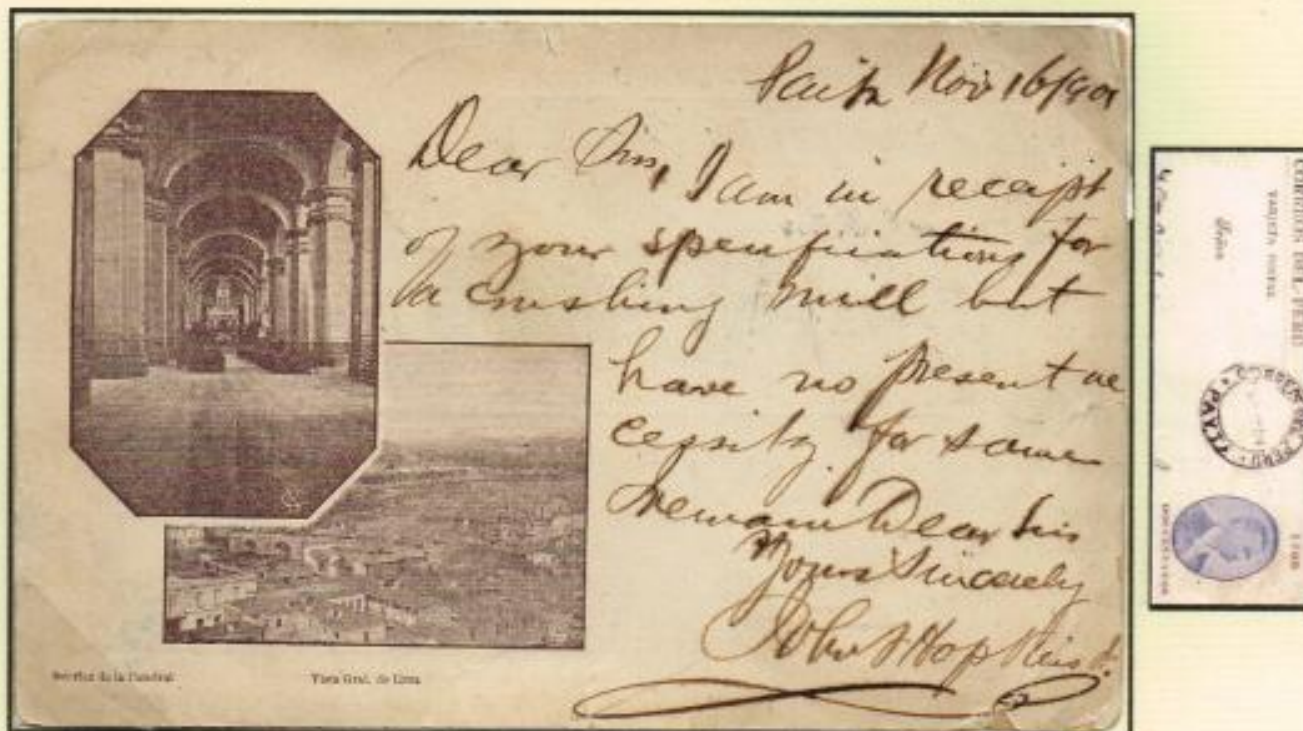 Paita Nov 16/901
Dear Sir, I am in receipt
of your specifications for
a crushing mill but
have no present ne
cessity for same
I remain Dear Sir
Yours Sincerely
Hopkins
Interior de la Catedral
Vista Gral. de Lima
CORREOS DEL PERU
TARJETA POSTAL
PAYTA